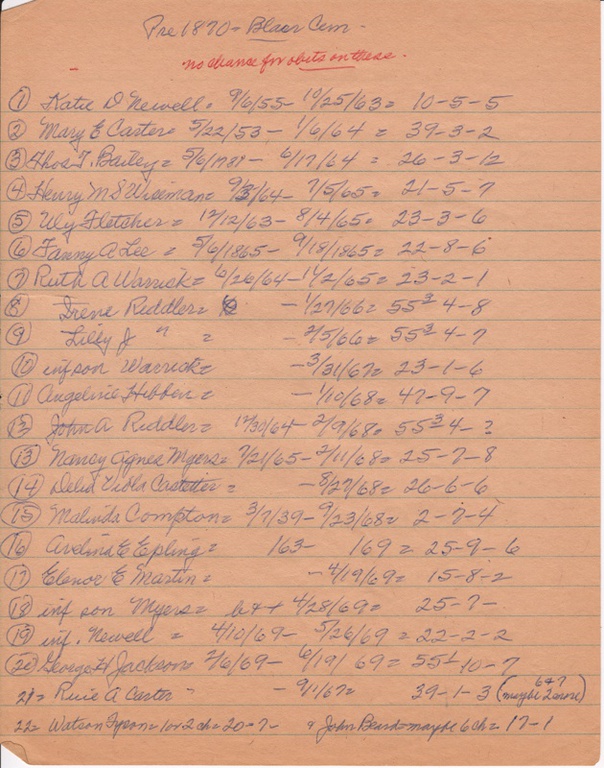 Pre 1870 = Blaor Cem -
no chance for obits on these.
① Katie D Newell = 9/6/55 - 10/25/63 = 10-5-5
② Mary E Carter = 5/22/53 - 1/6/64 = 39-3-2
③ Thos T. Bailey = 5/6/1789 - 6/17/64 = 26-3-12
④ Henry M S Wiseman = /64 - 7/5/65 = 21-5-7
⑤ Wy Fletcher = 12/12/63 - 8/4/65 = 23-3-6
⑥ Fanny A Lee = 5/6/1865 - 9/18/1865 = 22-8-6
⑦ Ruth A Warrick = 6/26/64 - 11/2/65 = 23-2-1
⑧ Irene Riddler = - 1/27/66 = 55 3/4-8
⑨ Lilly J " = - 2/5/66 = 55 3/4-7
⑩ inf son Warrick = - 3/31/67 = 23-1-6
⑪ Angeline Hibben = - 1/10/68 = 47-9-7
⑫ John A Riddler = 12/30/64 - 2/9/68 = 55 3/4-?
⑬ Nancy Agnes Myers = 7/21/65 - 2/11/68 = 25-7-8
⑭ Delia Viola Castetter = - 8/27/68 = 26-6-6
⑮ Malinda Compton = 3/7/39 - 9/23/68 = 2-7-4
⑯ Avelina E Epling = 163 - 169 = 25-9-6
⑰ Elenor E Martin = - 4/19/69 = 15-8-2
⑱ inf son Myers = b++ 4/28/69 = 25-7-
⑲ inf. Newell = 4/10/69 - 5/26/69 = 22-2-2
⑳ George H Jackson = 2/6/69 - 6/19/69 = 55 1-10-7
21 = Rucie A Carter - - 9/1/67 = 39-1-3 (6 & 7 maybe 2 more)
22 = Watson Tyson = 1 or 2 ch = 20-7- 9 John Beard = maybe 6 ch = 17-1